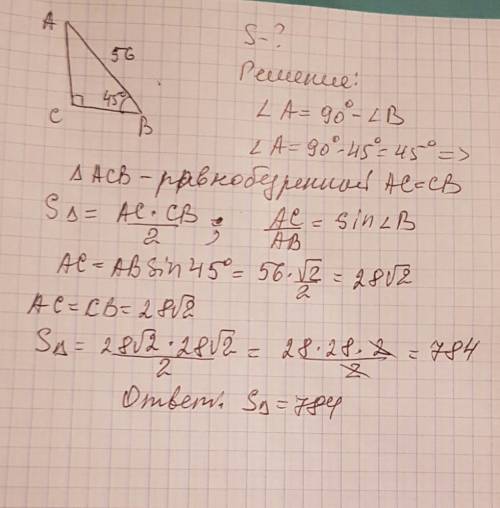 A
56
45°
C
B
S-?
Решение:
∠A = 90° - ∠B
∠A = 90° - 45° = 45° =>
Δ ACB - равнобедренной AC = CB
SΔ = AC · CB / 2 ; AC / AB = sin∠B
AC = AB sin 45° = 56 · √2 / 2 = 28√2
AC = CB = 28√2
SΔ = 28√2 · 28√2 / 2 = 28 · 28 · 2 / 2 = 784
Ответ: SΔ = 784